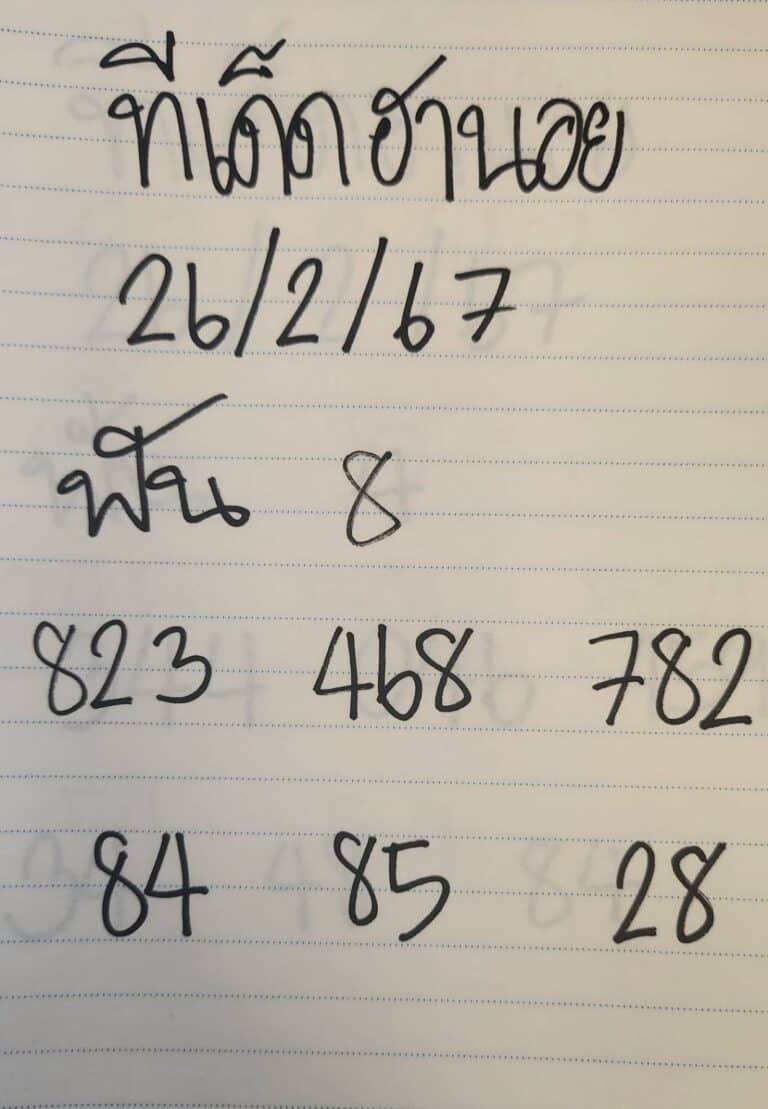 ทีเด็ด ฮานอย
26/2/67
ฟัน 8
823 468 782
84 85 28